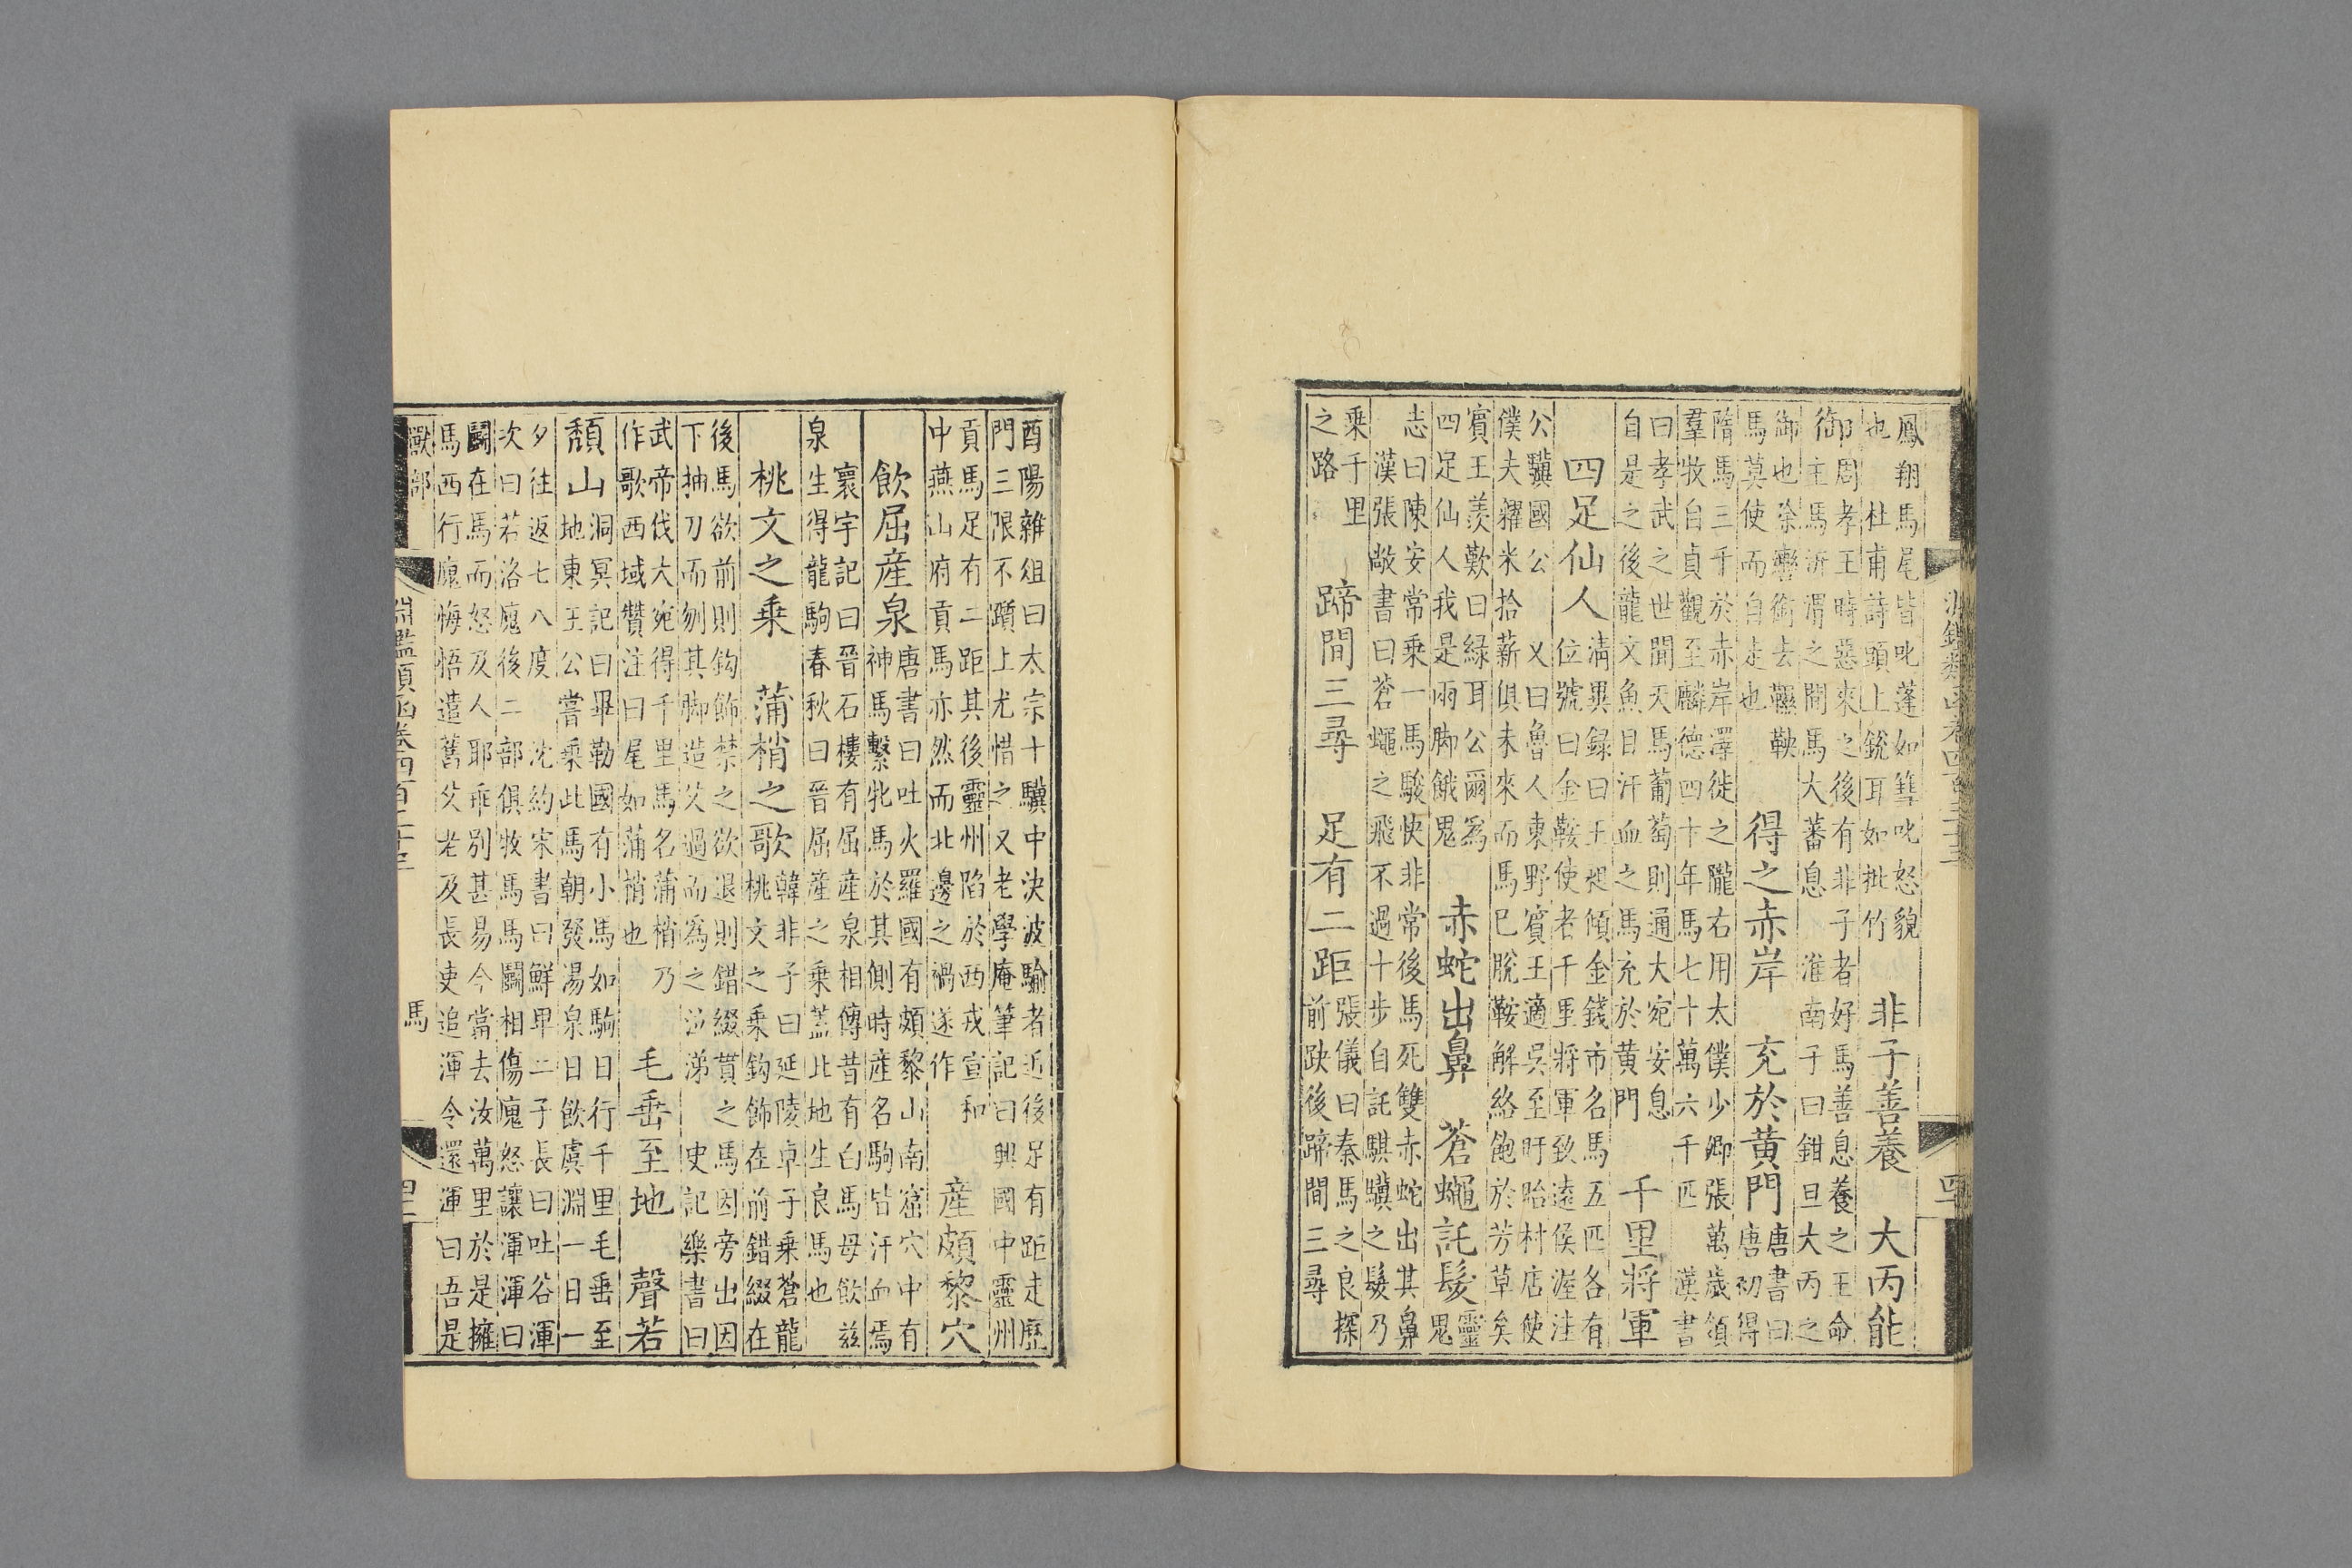 鳳翔馬尾皆叱蓬如篲叱怒貌
也　杜甫詩頭上銳耳如批竹
非子善養　大丙能
御
周孝王時惡來之後有非子者好馬善息養之王命
主馬汧渭之間馬大蕃息　淮南子曰鉗且大丙之
御也除轡銜去鞭鞅
馬莫使而自走也
得之赤岸　充於黄門
唐書曰
唐初得
隋馬三千於赤岸澤徙之隴右用太僕少卿張萬歲領
羣牧自貞觀至麟德四十年馬七十萬六千匹　漢書
曰孝武之世聞天馬葡萄則通大宛安息
自是之後龍文魚目汗血之馬充於黄門
千里將軍
四足仙人
清異録曰王昶傾金錢市名馬五匹各有
位號曰金鞍使者千里將軍致遠侯渥洼
公驥國公　又曰魯人東野賓王適吳至盱眙村店使
僕夫糴米拾薪俱未來而馬已脫鞍解絡飽於芳草矣
賓王羨歎曰緑耳公爾爲
四足仙人我是兩脚餓鬼
赤蛇出鼻　蒼蠅託髮
靈
鬼
志曰陳安常乗一馬駿快非常後馬死雙赤蛇出其鼻
漢張敞書曰蒼蠅之飛不過十步自託騏驥之髮乃
乗千里
之路
蹄間三尋　足有二距
張儀曰秦馬之良探
前趹後蹄間三尋
酉陽雜俎曰太宗十驥中決波騟者近後足有距走歷
門三限不躓上尤惜之　又老學庵筆記曰興國中靈州
貢馬足有二距其後靈州陷於西戎宣和
中燕山府貢馬亦然而北邊之禍遂作
産頗黎穴
飲屈産泉
唐書曰吐火羅國有頗黎山南窟穴中有
神馬繫牝馬於其側時産名駒皆汗血焉
寰宇記曰晉石樓有屈産泉相傳昔有白馬母飲兹
泉生得龍駒春秋曰晉屈産之乗蓋此地生良馬也
桃文之乗　蒲梢之歌
韓非子曰延陵卓子乗蒼龍
桃文之乗鈎飾在前錯綴在
後馬欲前則鈎飾禁之欲退則錯綴貫之馬因旁出因
下抽刀而刎其脚造父過而爲之泣涕　史記樂書曰
武帝伐大宛得千里馬名蒲梢乃
作歌西域贊注曰尾如蒲梢也
毛垂至地　聲若
頽山
洞冥記曰畢勒國有小馬如駒日行千里毛垂至
地東王公嘗乗此馬朝發湯泉日飲虞淵一日一
夕往返七八度　沈約宋書曰鮮卑二子長曰吐谷渾
次曰若洛廆後二部俱牧馬馬鬬相傷廆怒讓渾渾曰
鬬在馬而怒及人耶乖别甚易今當去汝萬里於是擁
馬西行廆悔悟遣舊父老及長吏追渾令還渾曰吾是
獸部
淵鑑類函卷四百三十三
馬